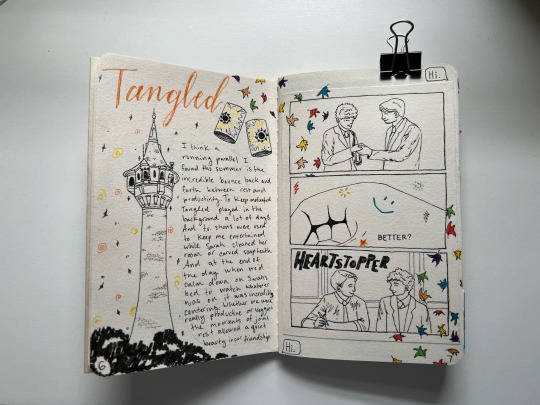 Tangled
I think a
running parallel I
found this summer is the
incredible bounce back and
forth between rest and
productivity. To keep motivated
Tangled played in the
background a lot of days
And tv shows were used
to keep me entertained
while Sarah cleaned her
room or carved soap
And at the end of
the day when we'd
calm down on Sarah's
bed to watch whatever
was on it was incredibly
Whether we were
really productive or
the moments of
rest allowed a quiet
beauty in our friendship.
6
Hi.
BETTER?
HEARTSTOPPER
Hi.